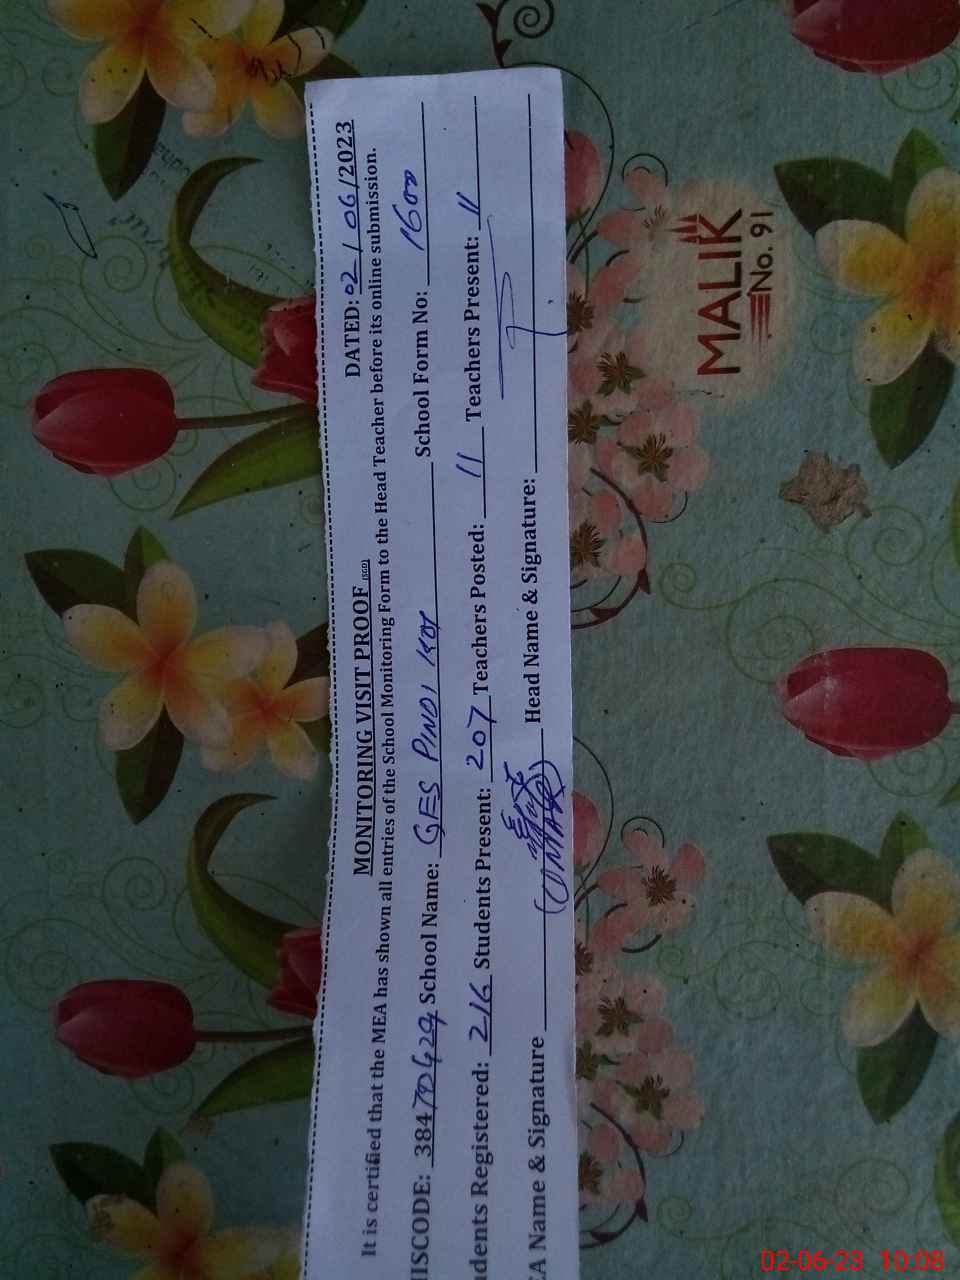 MONITORING VISIT PROOF (SGD) DATED: 02/06/2023
It is certified that the MEA has shown all entries of the School Monitoring Form to the Head Teacher before its online submission.
MISCODE: 384 School Name: GES PINDI KOT School Form No: 1600
Students Registered: 216 Students Present: 207 Teachers Posted: 11 Teachers Present: 11
EA Name & Signature (UMAR) Head Name & Signature:
MALIK
No. 91
02-06-23 10:08